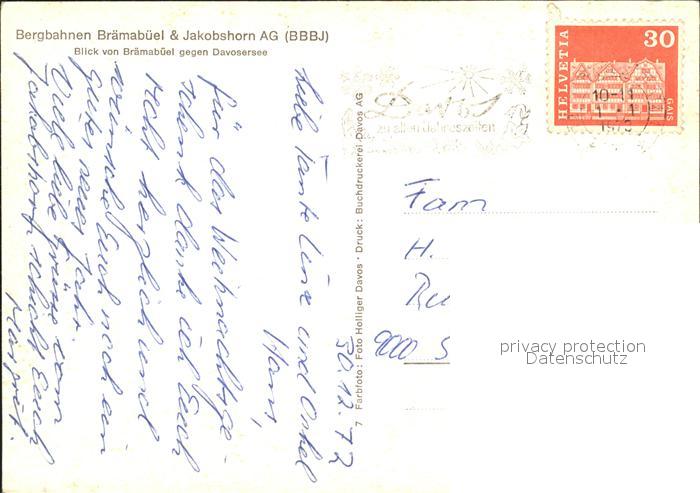 Bergbahnen Brämabüel & Jakobshorn AG (BBBJ)
Blick von Brämabüel gegen Davosersee
30.12.72
Liebe Tante Lina und Onkel
Hans,
für das Weihnachtsge-
schenk danke ich Euch
recht herzlich und
wünsche Euch noch ein
gutes neues Jahr.
Viele liebe Grüsse vom
Jakobshorn schickt Euch
Margrit.
7 Farbfoto: Foto Holliger Davos · Druck: Buchdruckerei Davos AG
Davos
zu allen Jahreszeiten
HELVETIA
30
GAIS
10-11
Fam
H.
Ru
9000 S
privacy protection
Datenschutz